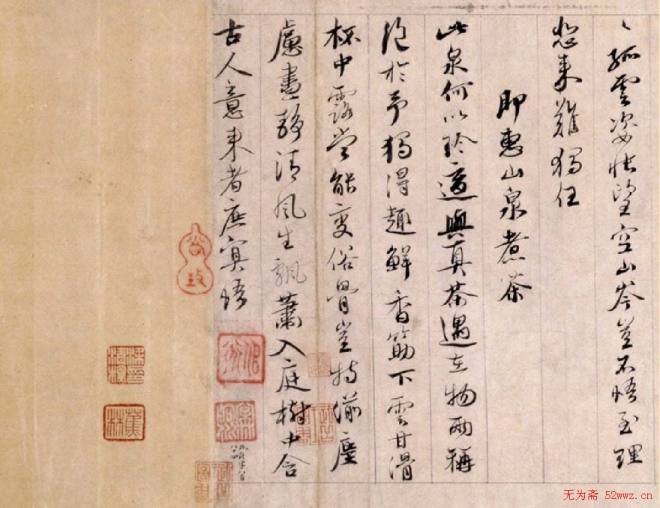 〻孤雲姿悵望空山岑豈不悟至理
愁來難獨任
即惠山泉煮茶
此泉何以珍適與真茶遇在物兩稱
絕於予獨得趣鮮香筯下雲甘滑
杯中露當能變俗骨豈特湔塵
慮晝靜清風生飄蕭入庭樹中含
古人意來者庶冥悟
蕉林
无为斋 52wwz.cn